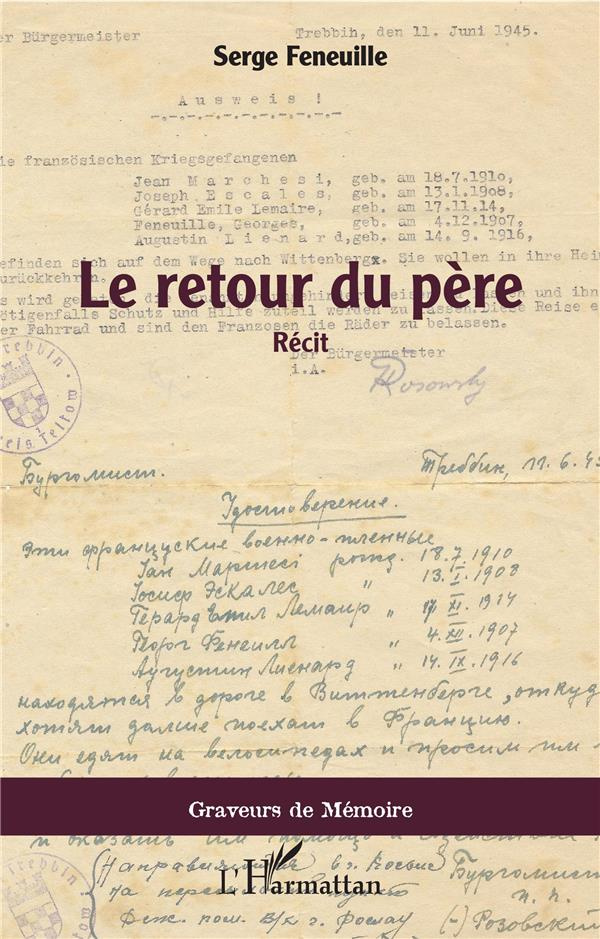 er Bürgermeister Trebbin, den 11. Juni 1945.
Serge Feneuille
Ausweis !
ie französischen Kriegsgefangenen
Jean Marchesi, geb. am 18.7.1910,
Joseph Escales, geb. am 13.1.1908,
Gérard Emile Lemaire, geb. am 17.11.14,
Feneuille, Georges, geb. am 4.12.1907,
Augustin Lienard, geb. am 14. 9. 1916,
efinden sich auf dem Wege nach Wittenberg. Sie wollen in ihre Hei
urückkehren.
Le retour du père
s wird die und ihn
ötigenfalls Schutz und Hilfe zuteil werden zu lassen. Diese Reise e
er Fahrrad und sind den Franzosen die Räder zu belassen.
Récit
Der Bürgermeister
i.A.
Rosowsky
Trebbin
Kreis Teltow
1
Бургомист. Треббин, 11.6.45
Удостоверение.
Эти француские военно-пленные
Ган Маршесі рожд. 18.7.1910
Іосиф Эскалес " 13.I.1908
Герард Емил Лемаир " 17 XI. 1914
Георг Фенеилл " 4.XII.1907
Аугустин Лиенард " 14.IX.1916
находятся в дороге в Виттенберге, откуд
хотят далше поехат в Францию.
Они едят на велосипедах и просим им
Graveurs de Mémoire
и оказать им помощь и
Trebbin
(Направляются в г. Бургомист
На п.п.
L'Harmattan
(-) Розовский